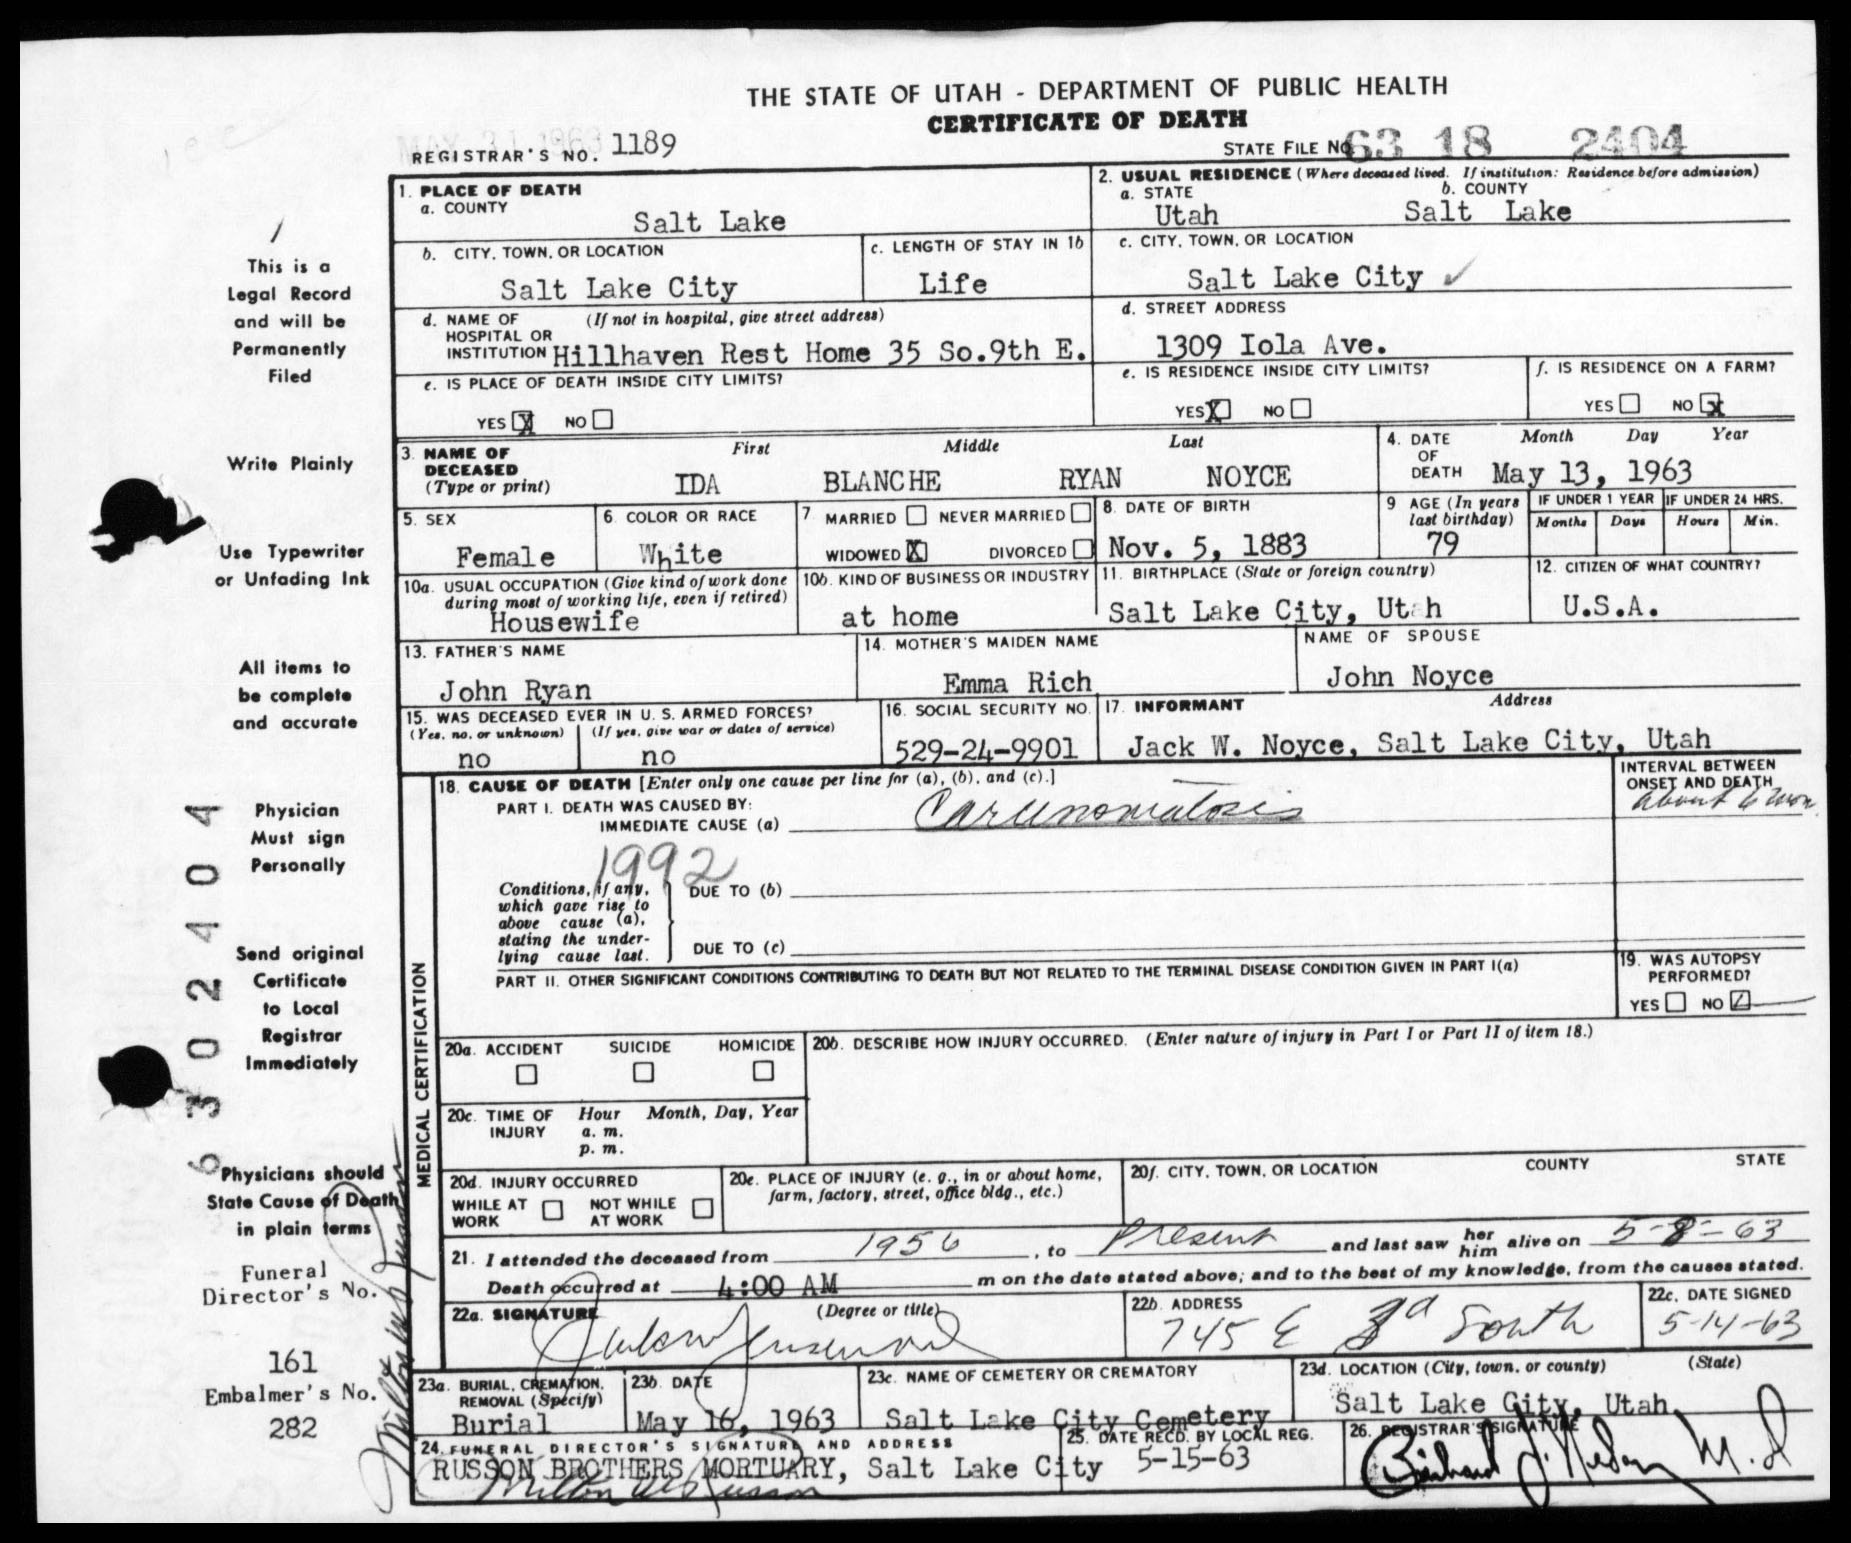 THE STATE OF UTAH - DEPARTMENT OF PUBLIC HEALTH
CERTIFICATE OF DEATH
MAY 31 1963
REGISTRAR'S NO. 1189
STATE FILE NO. 63 18 2404
1. PLACE OF DEATH
a. COUNTY
Salt Lake
2. USUAL RESIDENCE (Where deceased lived. If institution: Residence before admission)
a. STATE b. COUNTY
Utah Salt Lake
b. CITY, TOWN, OR LOCATION
Salt Lake City
c. LENGTH OF STAY IN 1b
Life
c. CITY, TOWN, OR LOCATION
Salt Lake City ✓
d. NAME OF (If not in hospital, give street address)
HOSPITAL OR
INSTITUTION Hillhaven Rest Home 35 So.9th E.
d. STREET ADDRESS
1309 Iola Ave.
e. IS PLACE OF DEATH INSIDE CITY LIMITS?
YES X NO
e. IS RESIDENCE INSIDE CITY LIMITS?
YES X NO
f. IS RESIDENCE ON A FARM?
YES NO X
3. NAME OF DECEASED (Type or print)
First Middle Last
IDA BLANCHE RYAN NOYCE
4. DATE OF DEATH
Month Day Year
May 13, 1963
5. SEX
Female
6. COLOR OR RACE
White
7. MARRIED NEVER MARRIED
WIDOWED X DIVORCED
8. DATE OF BIRTH
Nov. 5, 1883
9 AGE (In years last birthday)
79
IF UNDER 1 YEAR IF UNDER 24 HRS.
Months Days Hours Min.
10a. USUAL OCCUPATION (Give kind of work done
during most of working life, even if retired)
Housewife
10b. KIND OF BUSINESS OR INDUSTRY
at home
11. BIRTHPLACE (State or foreign country)
Salt Lake City, Utah
12. CITIZEN OF WHAT COUNTRY?
U.S.A.
13. FATHER'S NAME
John Ryan
14. MOTHER'S MAIDEN NAME
Emma Rich
NAME OF SPOUSE
John Noyce
15. WAS DECEASED EVER IN U. S. ARMED FORCES?
(Yes, no, or unknown) (If yes, give war or dates of service)
no no
16. SOCIAL SECURITY NO.
529-24-9901
17. INFORMANT Address
Jack W. Noyce, Salt Lake City, Utah
18. CAUSE OF DEATH [Enter only one cause per line for (a), (b), and (c).]
PART I. DEATH WAS CAUSED BY:
IMMEDIATE CAUSE (a) Carcinomatosis
INTERVAL BETWEEN
ONSET AND DEATH
about 6 mon
1992
Conditions, if any,
which gave rise to
above cause (a),
stating the under-
lying cause last.
DUE TO (b)
DUE TO (c)
PART II. OTHER SIGNIFICANT CONDITIONS CONTRIBUTING TO DEATH BUT NOT RELATED TO THE TERMINAL DISEASE CONDITION GIVEN IN PART I(a)
19. WAS AUTOPSY
PERFORMED?
YES NO
MEDICAL CERTIFICATION
20a. ACCIDENT SUICIDE HOMICIDE
20b. DESCRIBE HOW INJURY OCCURRED. (Enter nature of injury in Part I or Part II of item 18.)
20c. TIME OF INJURY
Hour Month, Day, Year
a. m.
p. m.
20d. INJURY OCCURRED
WHILE AT WORK NOT WHILE AT WORK
20e. PLACE OF INJURY (e. g., in or about home,
farm, factory, street, office bldg., etc.)
20f. CITY, TOWN, OR LOCATION COUNTY STATE
21. I attended the deceased from 1956, to Present and last saw her him alive on 5-8-63
Death occurred at 4:00 AM m on the date stated above; and to the best of my knowledge, from the causes stated.
22a. SIGNATURE (Degree or title)
22b. ADDRESS
745 E 3d South
22c. DATE SIGNED
5-14-63
23a. BURIAL, CREMATION,
REMOVAL (Specify)
Burial
23b. DATE
May 16, 1963
23c. NAME OF CEMETERY OR CREMATORY
Salt Lake City Cemetery
23d. LOCATION (City, town, or county) (State)
Salt Lake City, Utah
24. FUNERAL DIRECTOR'S SIGNATURE AND ADDRESS
RUSSON BROTHERS MORTUARY, Salt Lake City
25. DATE RECD. BY LOCAL REG.
5-15-63
26. REGISTRAR'S SIGNATURE
M.D
This is a
Legal Record
and will be
Permanently
Filed
Write Plainly
Use Typewriter
or Unfading Ink
All items to
be complete
and accurate
Physician
Must sign
Personally
Send original
Certificate
to Local
Registrar
Immediately
Physicians should
State Cause of Death
in plain terms
Funeral
Director's No.
161
Embalmer's No.
282
6302404